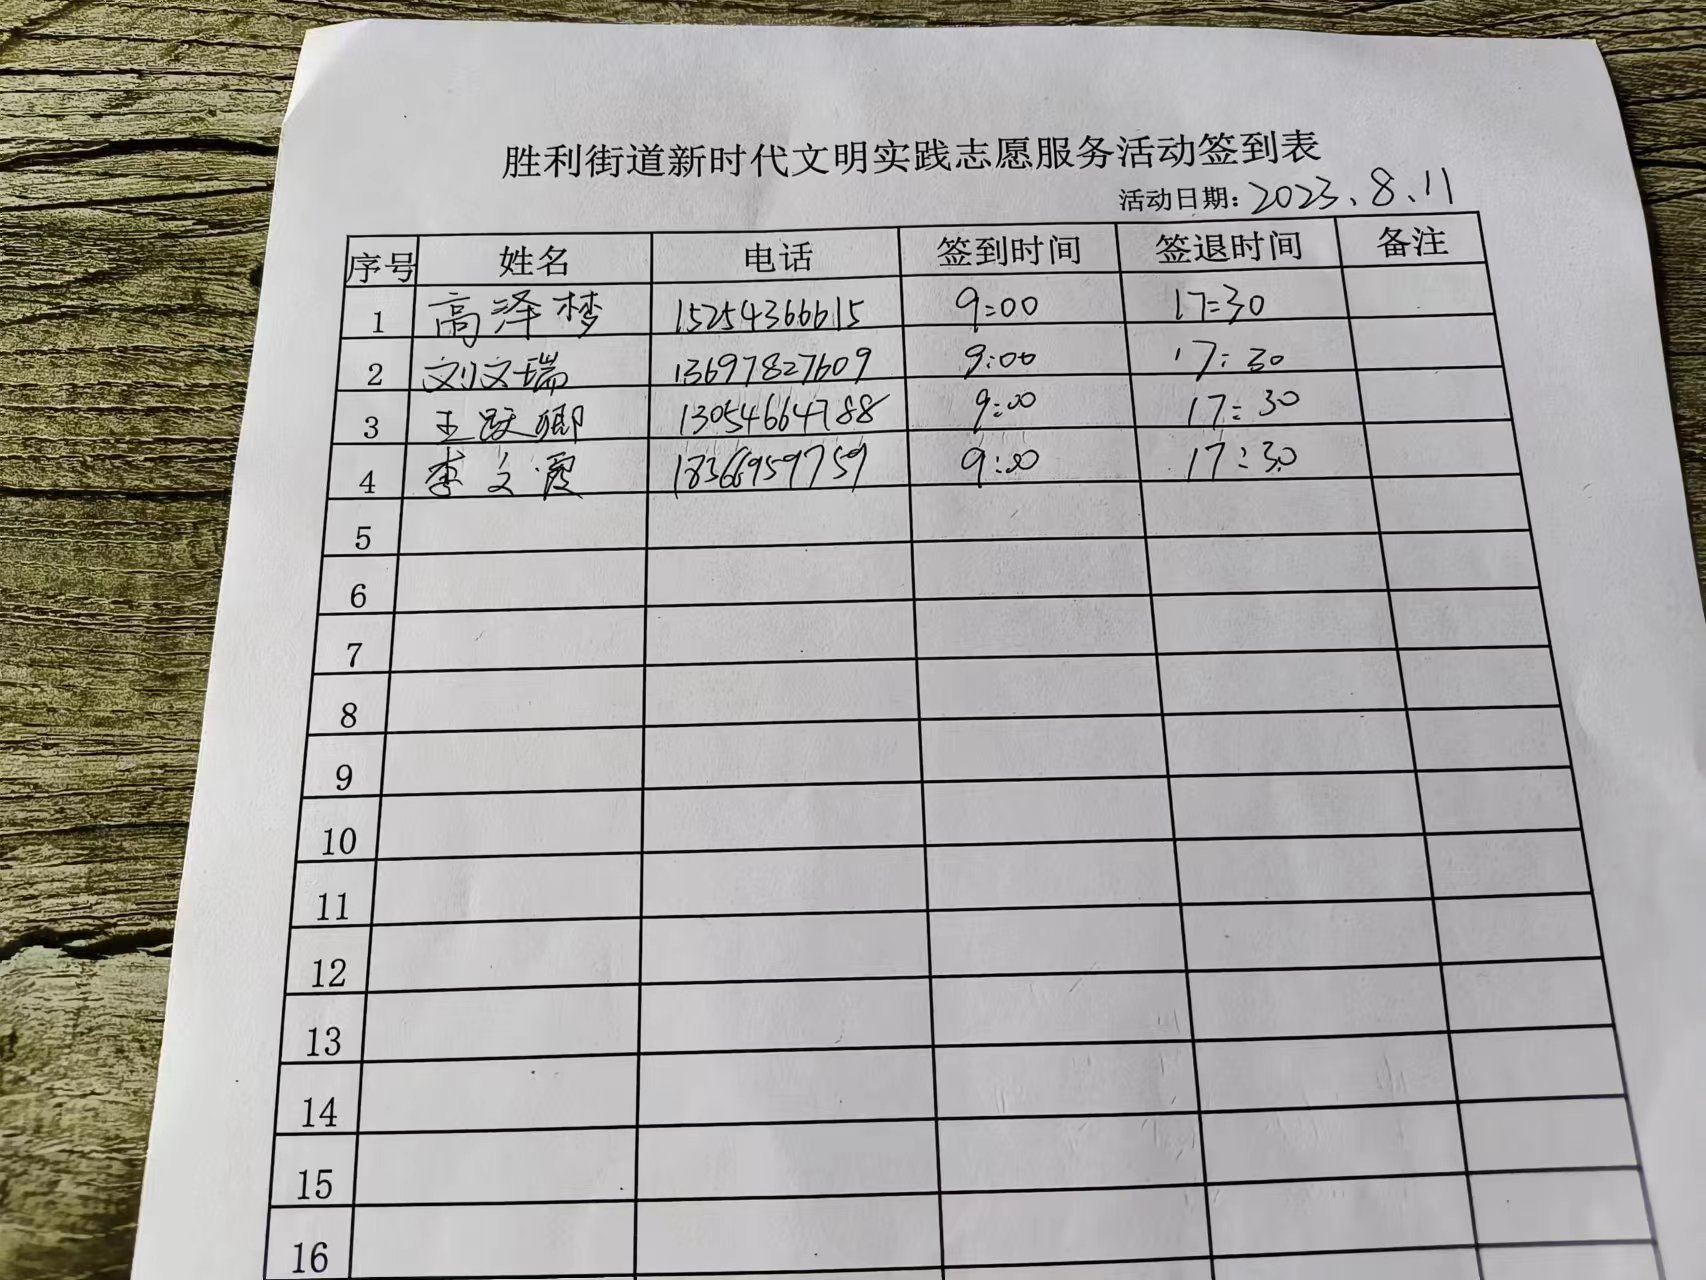 胜利街道新时代文明实践志愿服务活动签到表
活动日期：2023.8.11
序号 姓名 电话 签到时间 签退时间 备注
1 高泽梦 15254366615 9:00 17:30
2 刘文瑞 13697827609 9:00 17:30
3 王跃卿 13054664788 9:00 17:30
4 李文霞 18366959759 9:00 17:30
5
6
7
8
9
10
11
12
13
14
15
16